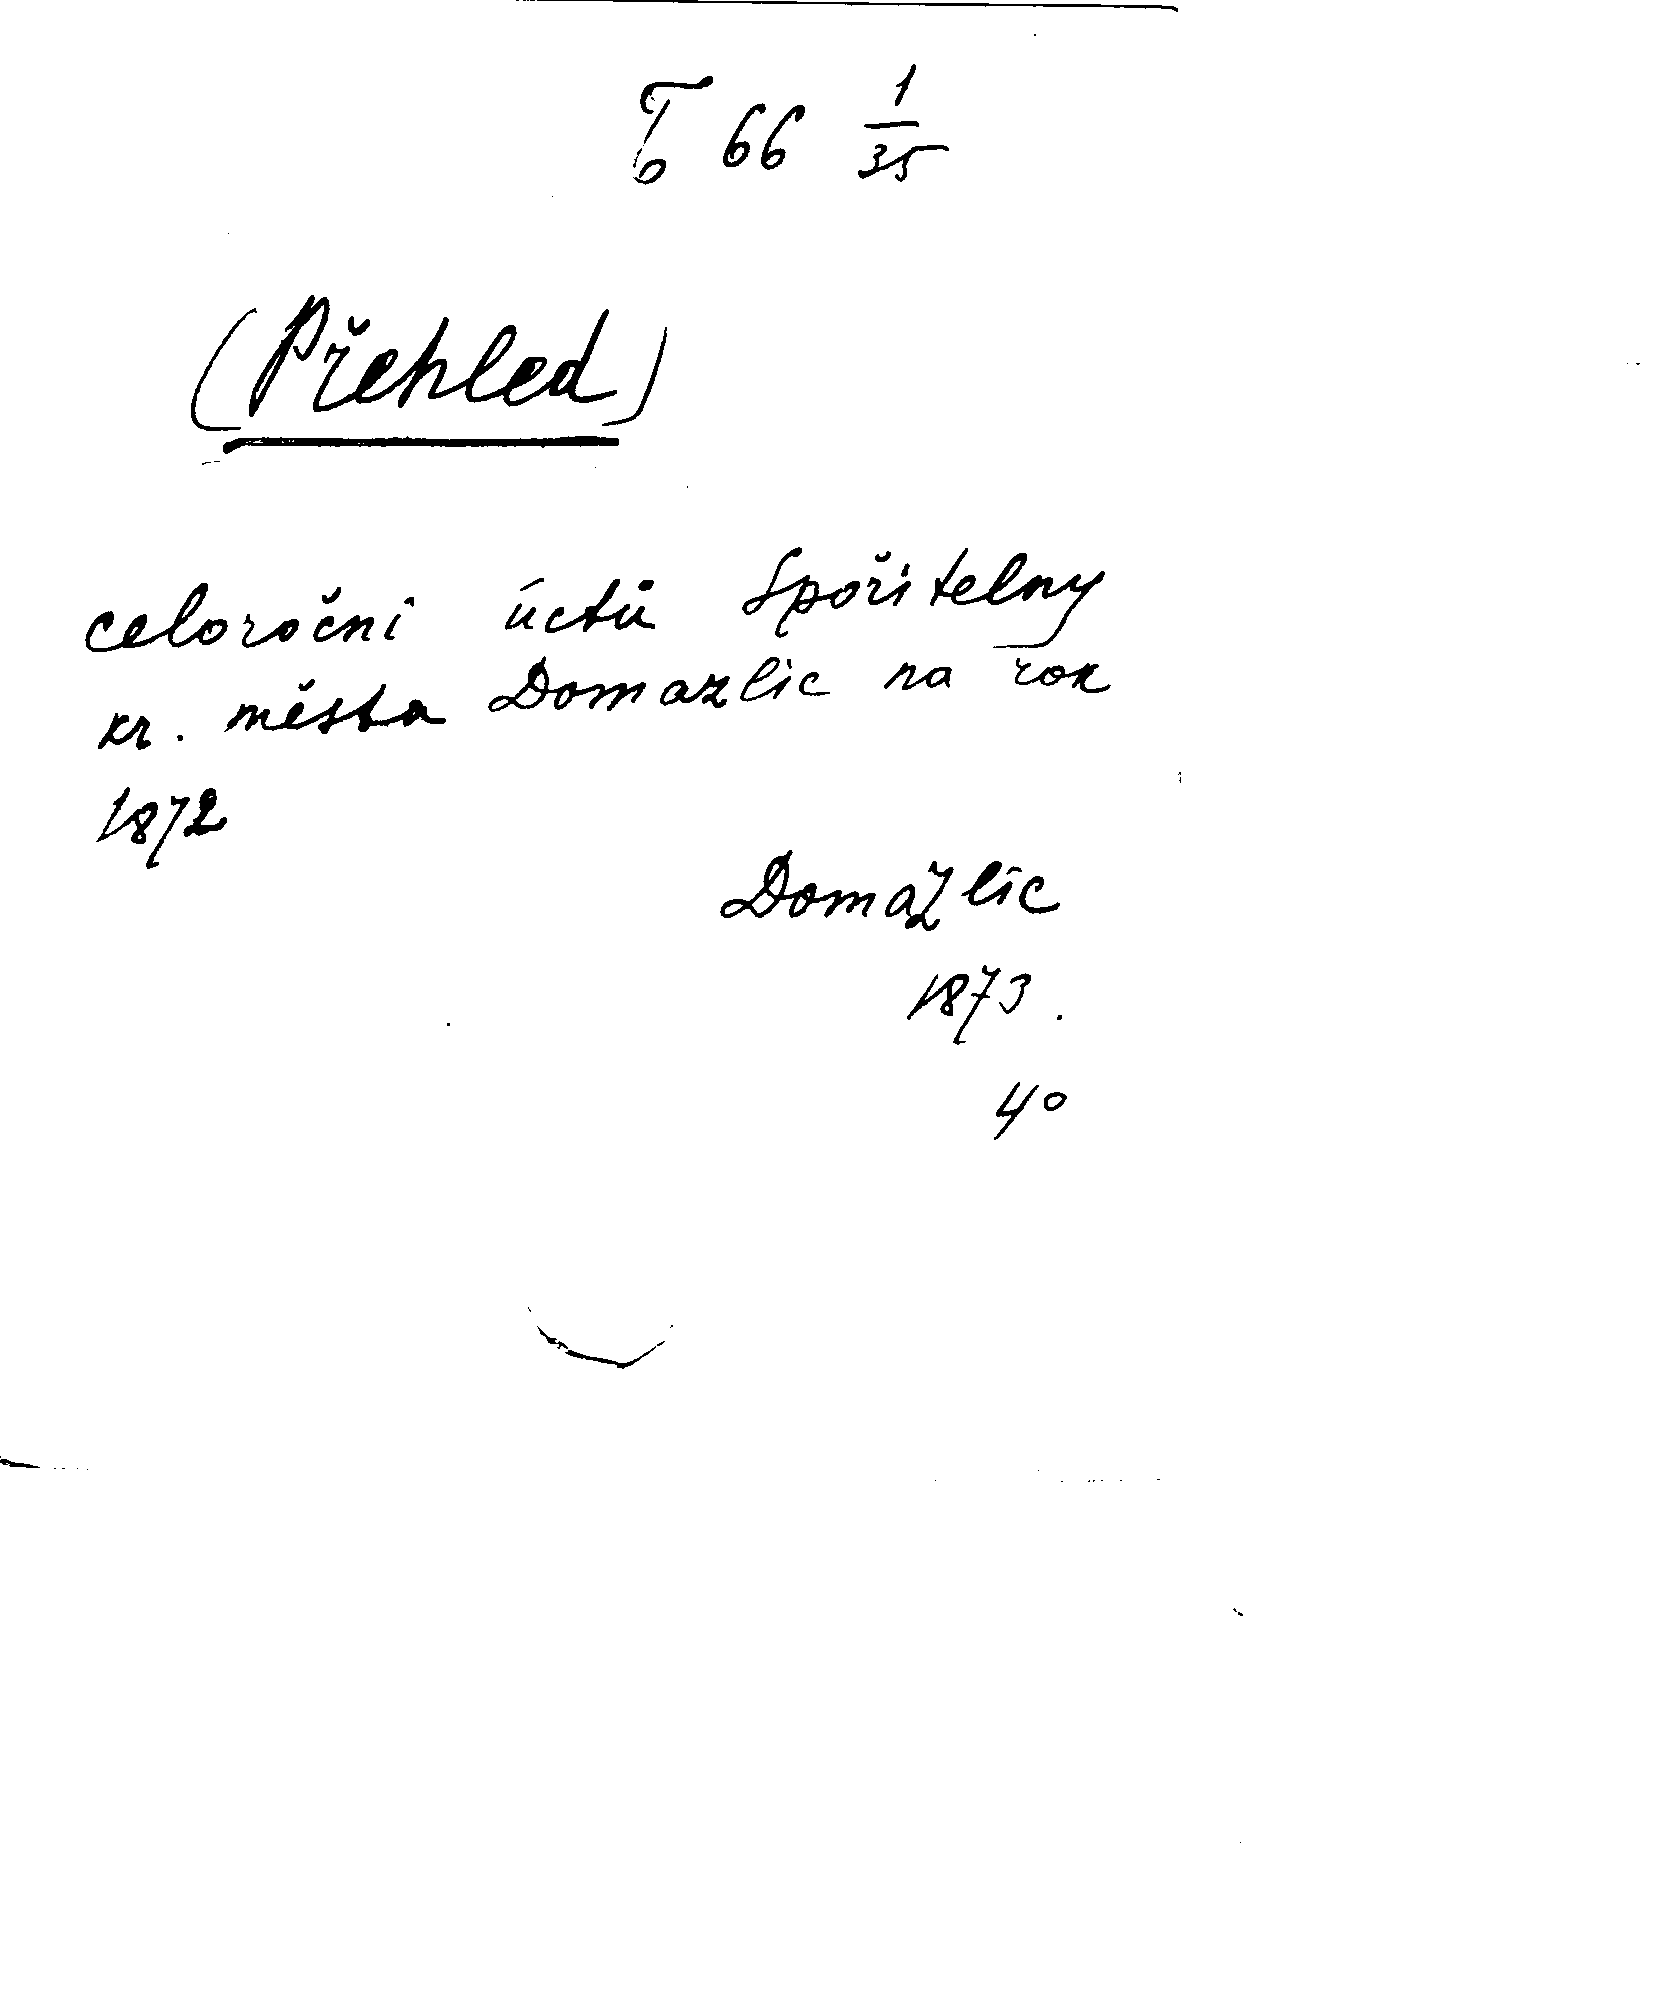 T 66 1/35
(Přehled)
celoroční účtů Spořitelny
kr. města Domazlic na rok
1872
Domažlic
1873.
4°